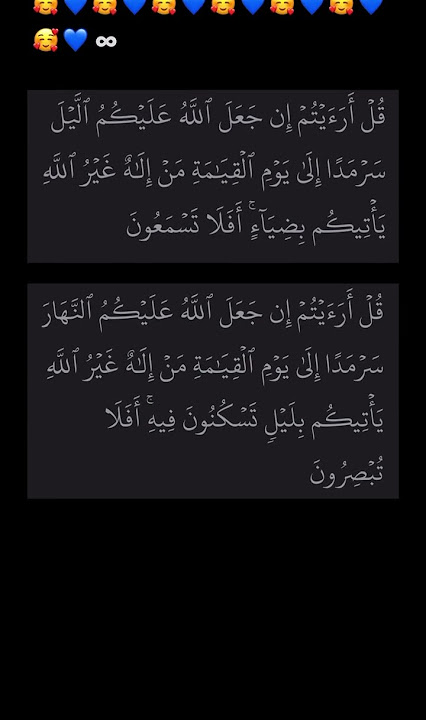 🥰💙🥰💙🥰💙🥰💙🥰💙🥰💙
🥰💙 ∞
قُلۡ أَرَءَيۡتُمۡ إِن جَعَلَ ٱللَّهُ عَلَيۡكُمُ ٱلَّيۡلَ
سَرۡمَدًا إِلَىٰ يَوۡمِ ٱلۡقِيَٰمَةِ مَنۡ إِلَٰهٌ غَيۡرُ ٱللَّهِ
يَأۡتِيكُم بِضِيَآءٍۚ أَفَلَا تَسۡمَعُونَ
قُلۡ أَرَءَيۡتُمۡ إِن جَعَلَ ٱللَّهُ عَلَيۡكُمُ ٱلنَّهَارَ
سَرۡمَدًا إِلَىٰ يَوۡمِ ٱلۡقِيَٰمَةِ مَنۡ إِلَٰهٌ غَيۡرُ ٱللَّهِ
يَأۡتِيكُم بِلَيۡلٖ تَسۡكُنُونَ فِيهِۚ أَفَلَا
تُبۡصِرُونَ